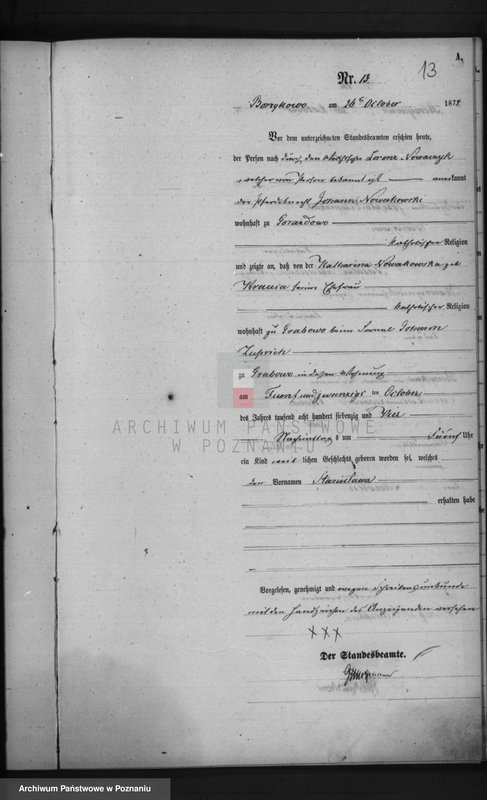 A.
13
Nr. 13.
Borzykowo am 26t October 1874
Vor dem unterzeichneten Standesbeamten erschien heute,
der Person nach durch den Lorenz Nowaczyk
welcher von Person bekannt ist anerkannt
der Pferdeknecht Johann Nowakowski
wohnhaft zu Gorazdowo
katholischer Religion
und zeigte an, daß von der Katharina Nowakowska geb.
seiner Ehefrau
katholischer Religion
wohnhaft zu Grabowo beim Johann
zu Grabowo in dessen Wohnung
am Fuenf und zwanzigs ten October
des Jahrs tausend acht hundert siebenzig und Vier
Nachmittag s um Fünf Uhr
ein Kind weib lichen Geschlechts geboren worden sei, welches
den Vornamen Stanisława
erhalten habe
Vorgelesen, genehmigt und wegen Schreibensunkunde
mit den Handzeichen des Anzeigenden versehen
XXX
Der Standesbeamte.
ARCHIWUM PAŃSTWOWE
W POZNANIU
Archiwum Państwowe w Poznaniu